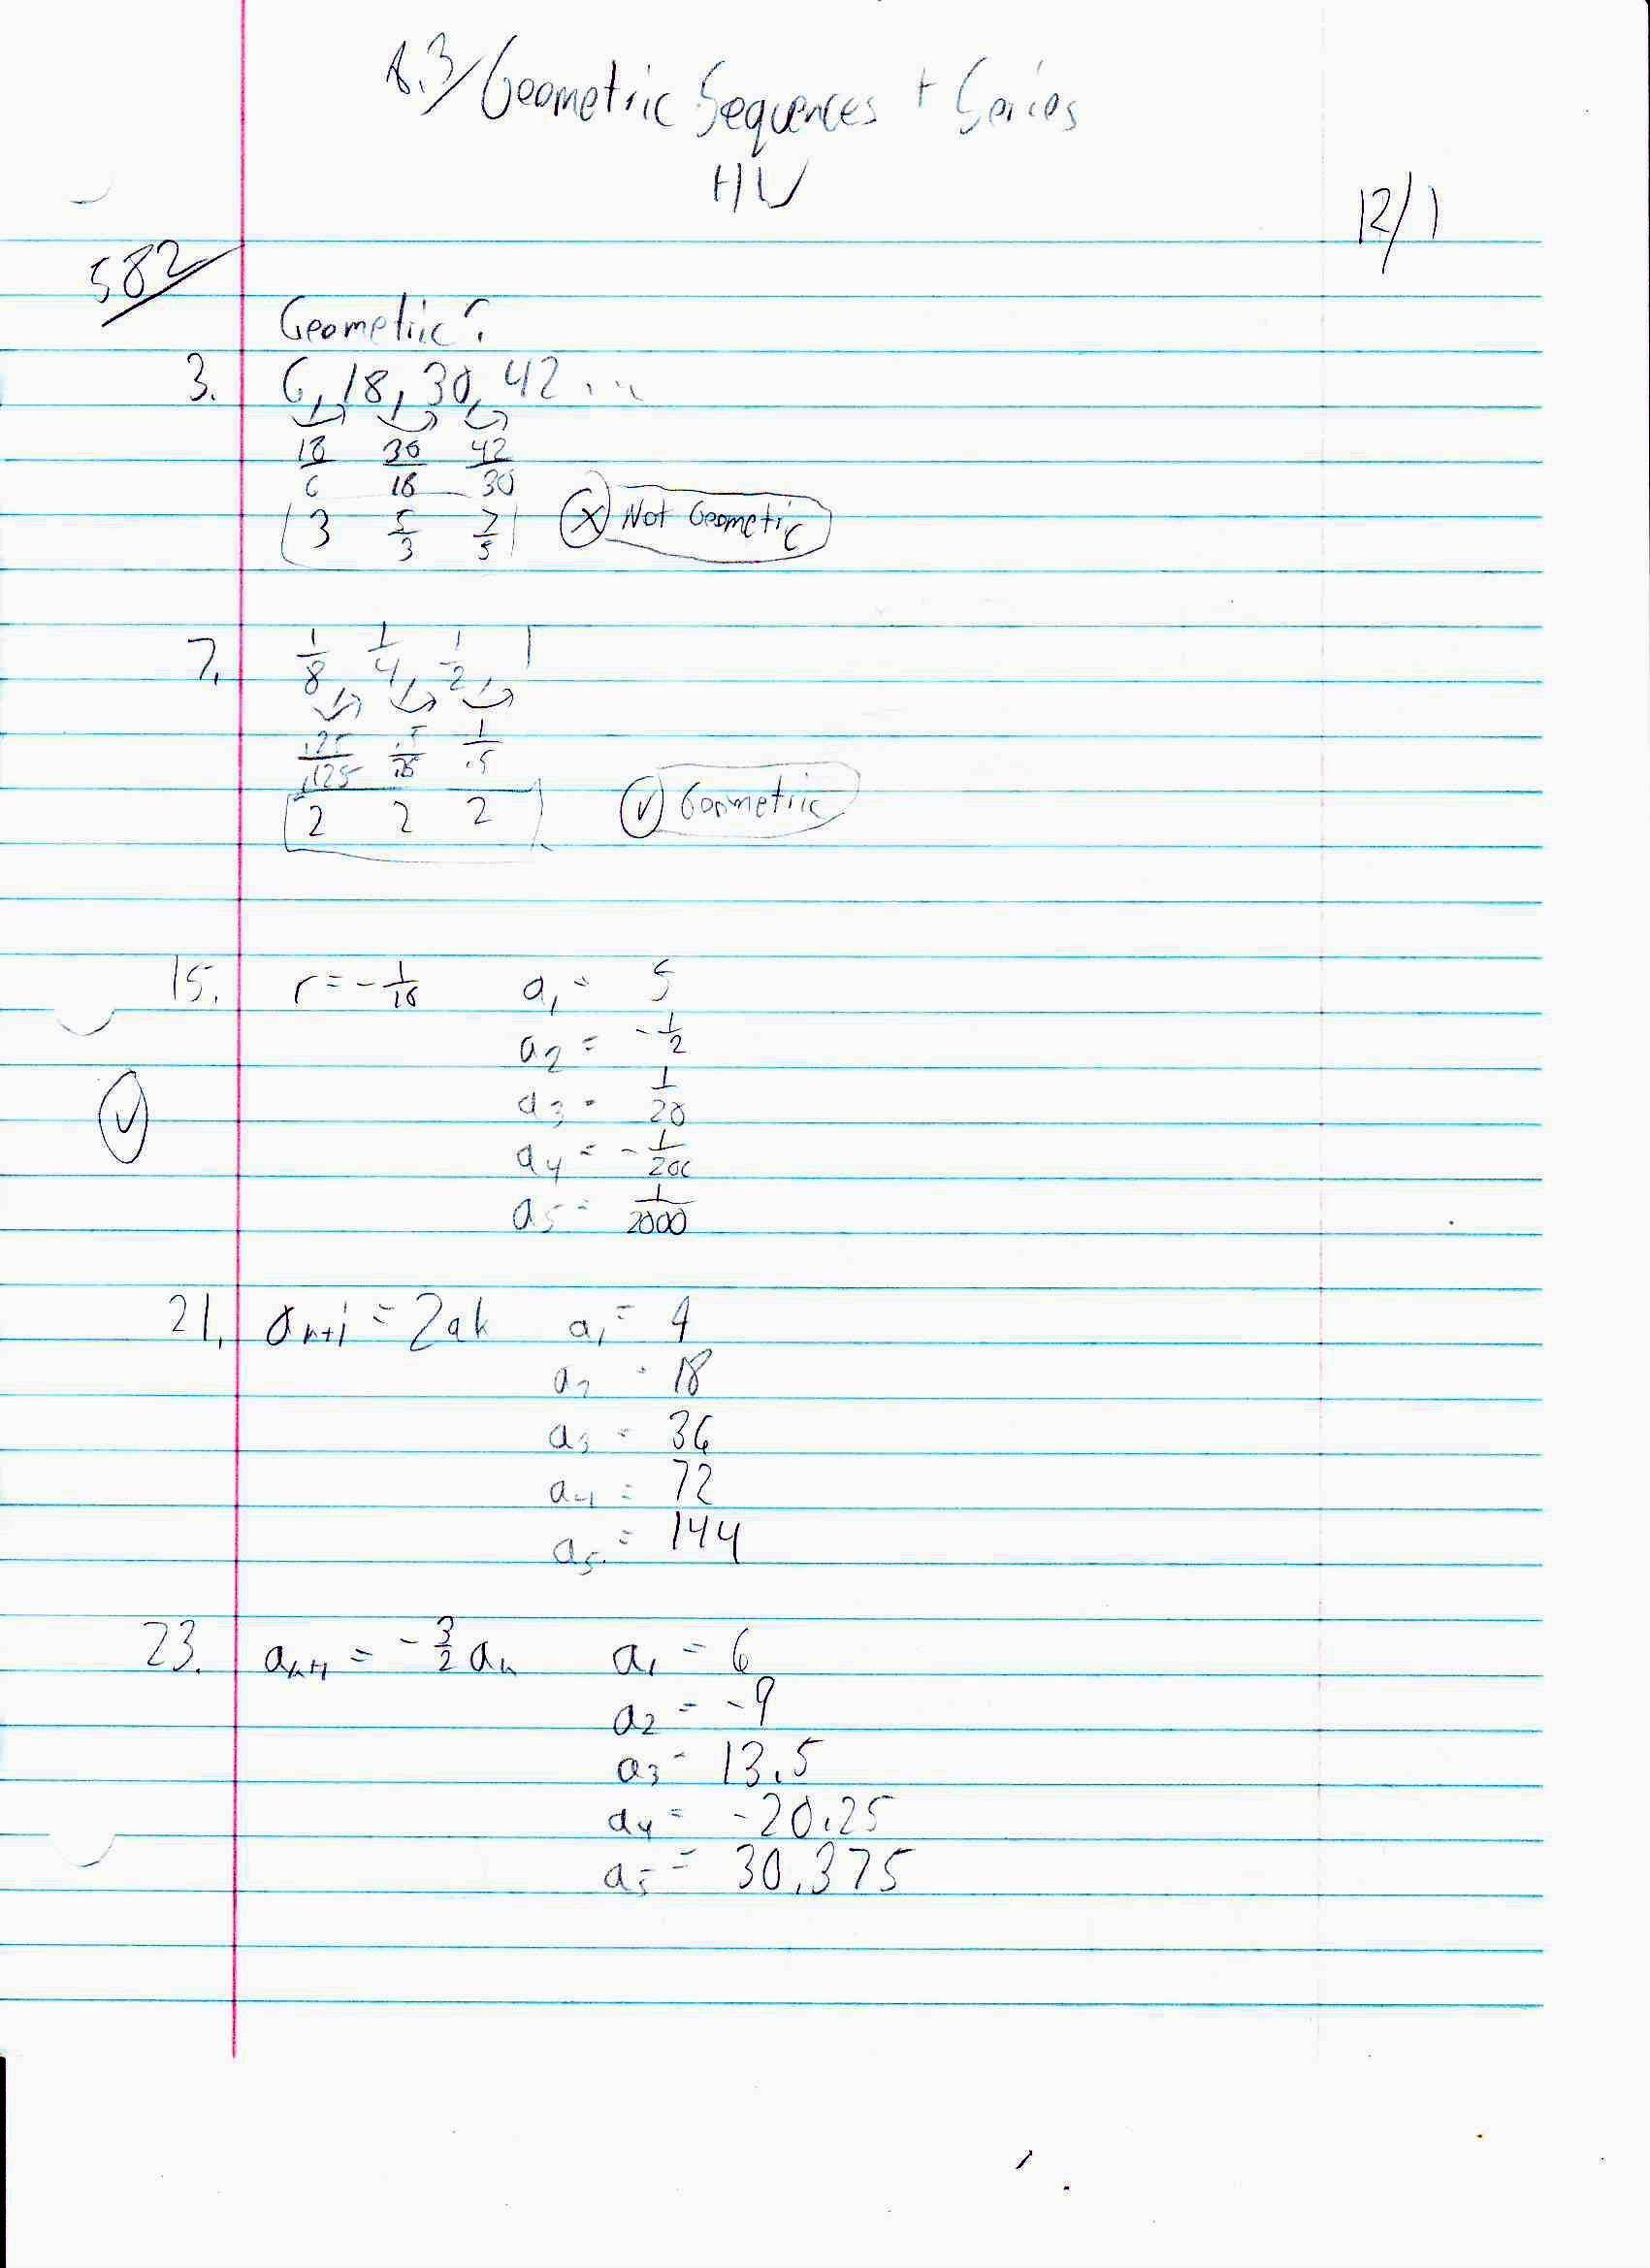 8.3/ Geometric Sequences + Series
HW
12/1
582
Geometric?
3. 6, 18, 30, 42 ...
18/6 30/18 42/30
3 5/3 7/5 X Not Geometric
7. 1/8, 1/4, 1/2, 1
.25/.125 .5/.25 1/.5
2 2 2 ✓ Geometric
15. r = -1/10 a1 = 5
a2 = -1/2
a3 = 1/20
✓
a4 = -1/200
a5 = 1/2000
21. ak+1 = 2ak a1 = 9
a2 = 18
a3 = 36
a4 = 72
a5 = 144
23. ak+1 = -3/2 ak a1 = 6
a2 = -9
a3 = 13.5
a4 = -20.25
a5 = 30.375